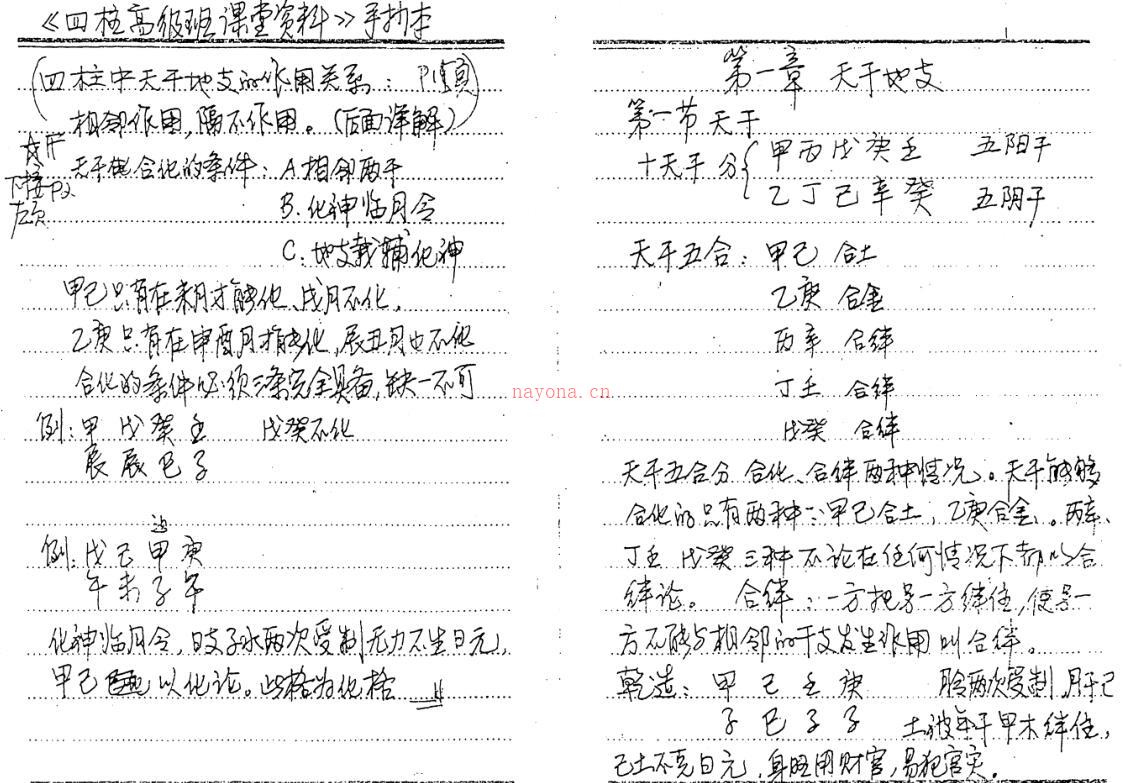 《四柱高级班课堂资料》手抄本
(四柱中天干地支的作用关系: P1页)
相邻作用,隔不作用。(后面详解)
下接P2
左页
天干合化的条件: A 相邻两干
B. 化神临月令
C. 地支栽辅化神
甲己只有在未月才能化、戌月不化,
乙庚只有在申酉月才能化,辰丑月也不化
合化的条件必须三条完全具备,缺一不可
例: 甲 戊 癸 壬 戊癸不化
辰 辰 巳 子
例: 戊 己 甲 庚
午 未 子 午
化神临月令,日支子水两次受制无力不生日元,
甲己 以化论。此格为化格
第一章 天干地支
第一节 天干
十天干 分{ 甲 丙 戊 庚 壬 五阳干
乙 丁 己 辛 癸 五阴干
天干五合: 甲己 合土
乙庚 合金
丙辛 合绊
丁壬 合绊
戊癸 合绊
天干五合分 合化、合绊两种情况。天干能够
合化的只有两种:甲己合土,乙庚合金。丙辛、
丁壬 戊癸三种不论在任何情况下都以合
绊论。 合绊: 一方把另一方绊住,使另一
方不能与相邻的干支发生作用叫合绊。
乾造: 甲 己 壬 庚 两次受制,月干己
子 巳 子 子 土被年干甲木绊住,
己土不克日元,身旺用财官,易犯官灾。
nayona.cn